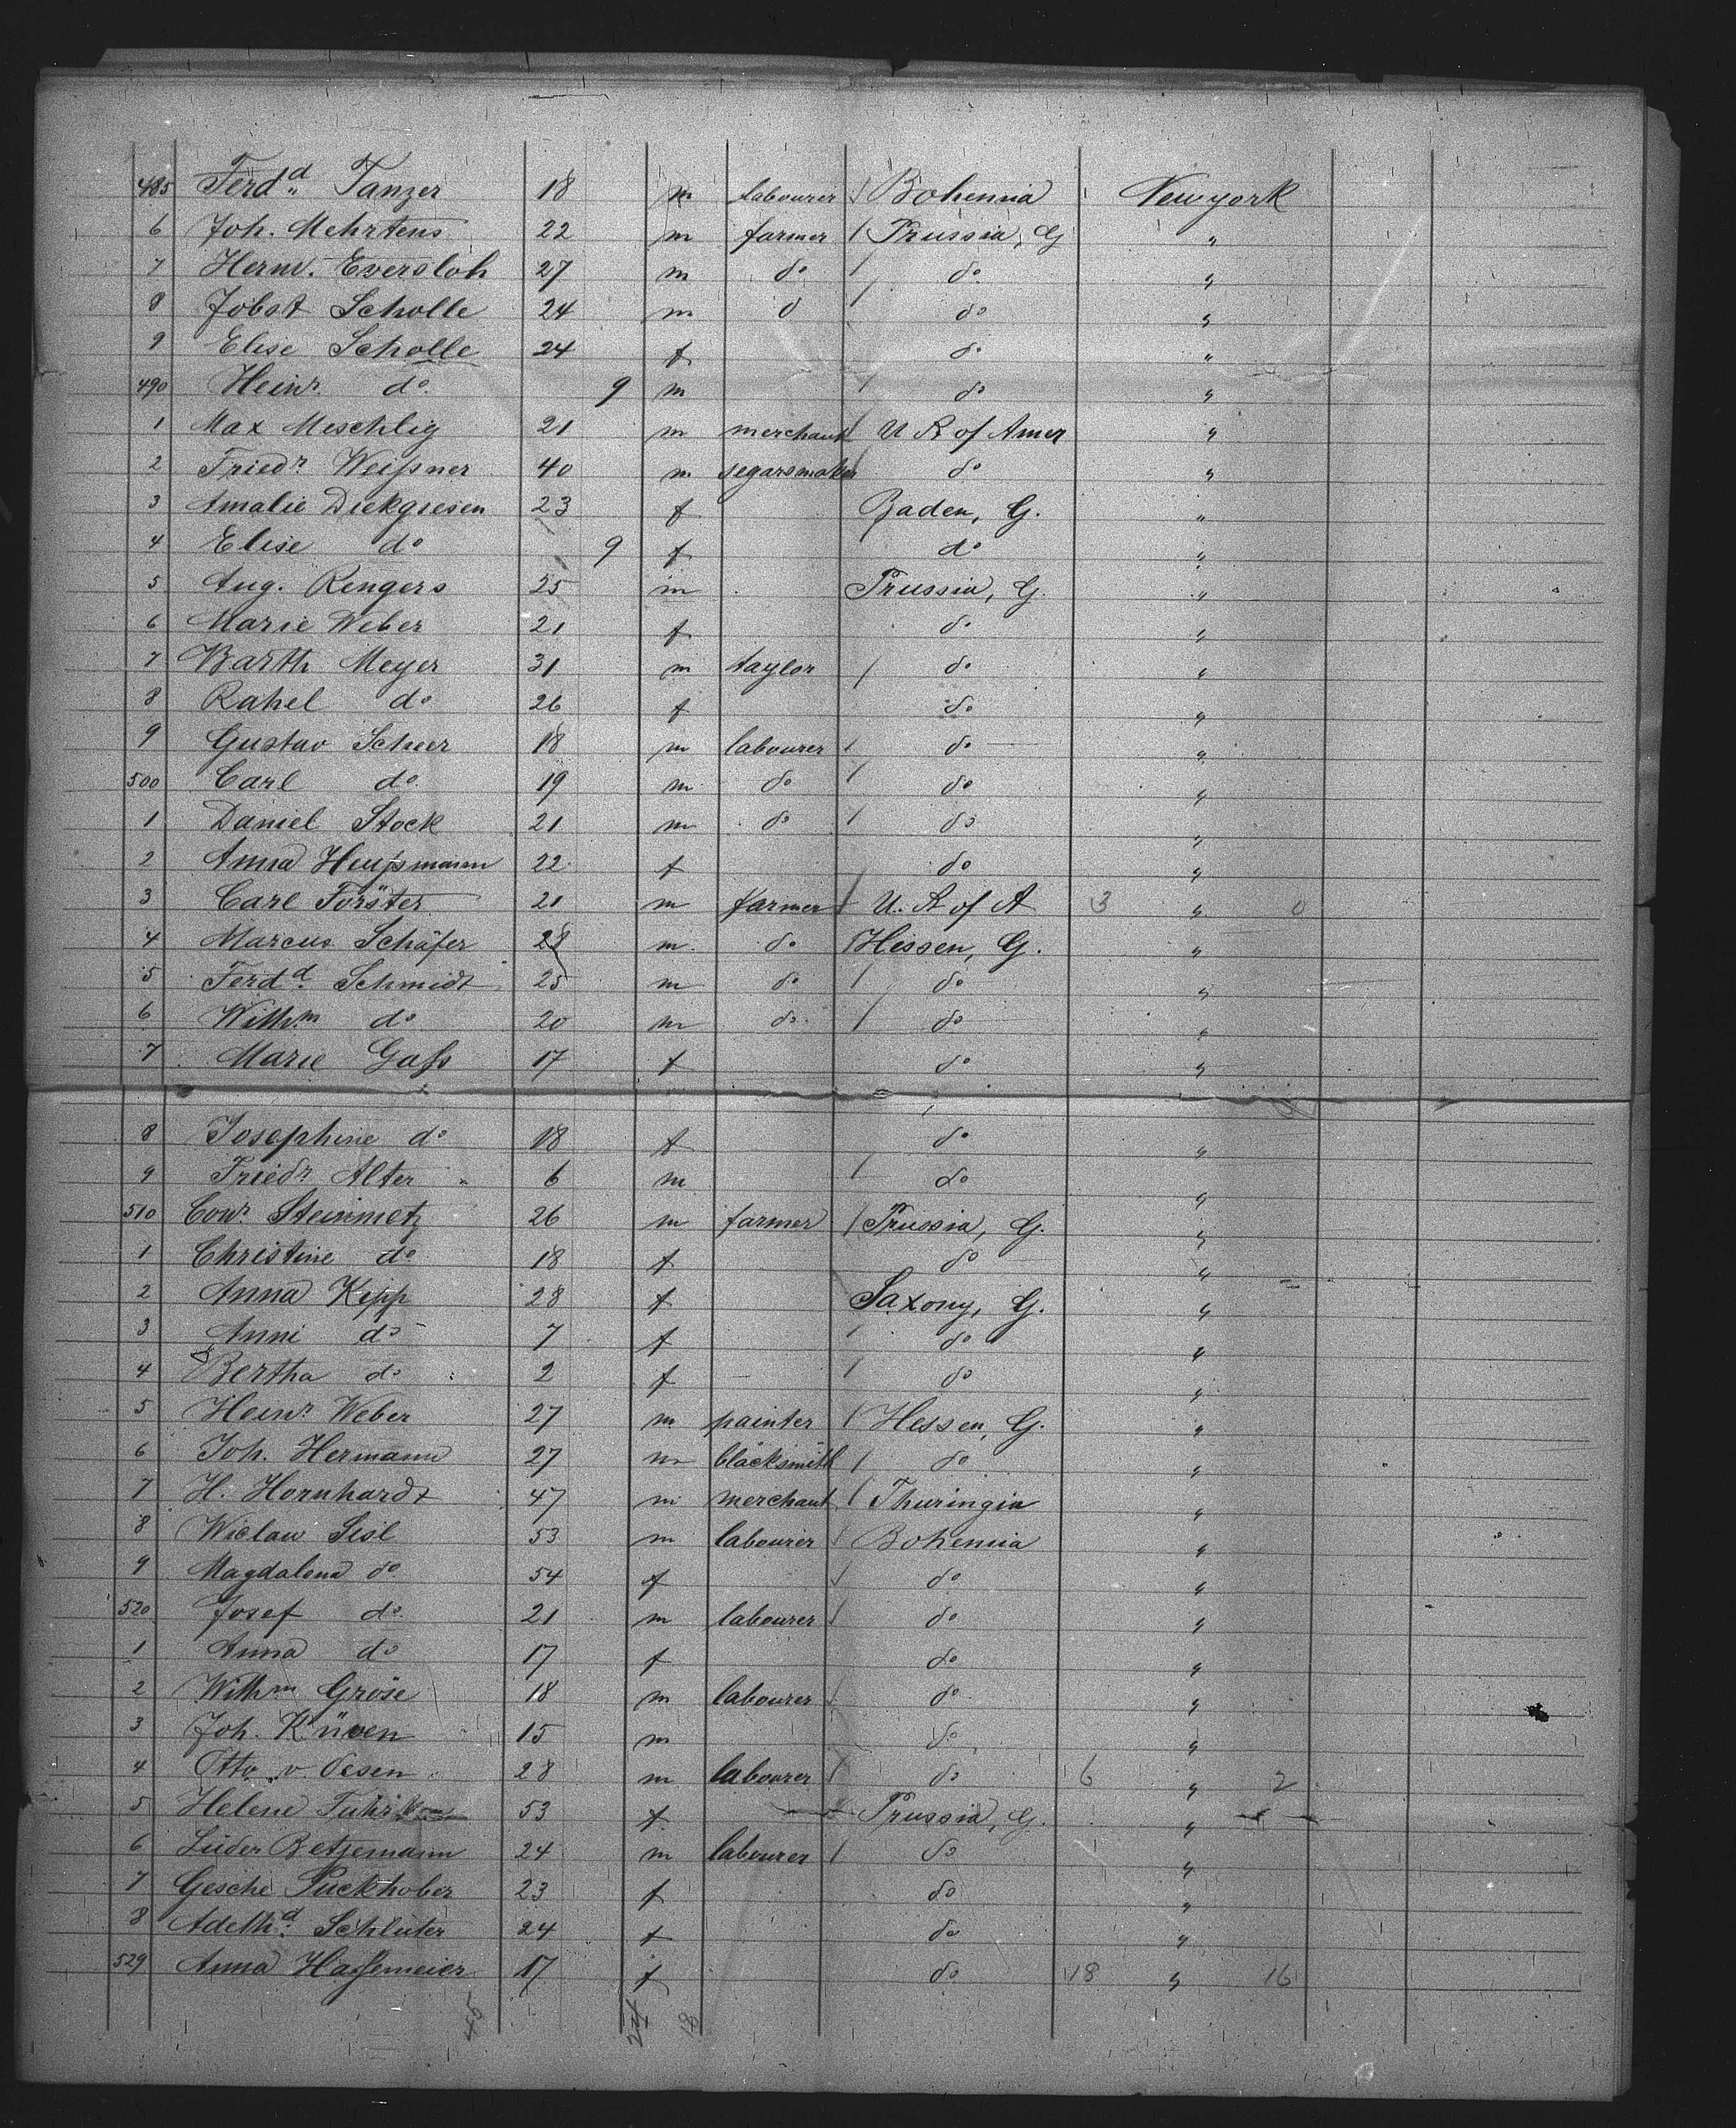 485 Ferd.d Tanzer 18 m labourer / Bohemia Newyork
6 Joh. Mehrtens 22 m farmer / Prussia, G "
7 Herm. Eversloh 27 m do / do "
8 Jobst Scholle 24 m d / do "
9 Elise Scholle 24 f do "
490 Heinr. do 9 m / do "
1 Max Meschlig 21 m merchant / U S of Amer "
2 Friedr Weißner 40 m segarsmaker / do "
3 Amalie Diekgiesen 23 f Baden, G. "
4 Elise do 9 f do "
5 Aug. Rengers 25 m Prussia, G. "
6 Marie Weber 21 f do "
7 Barth Meyer 31 m taylor / do "
8 Rahel do 26 f do "
9 Gustav Scheer 18 m labourer / do "
500 Carl do 19 m do / do "
1 Daniel Stock 21 m do / do "
2 Anna 22 f do "
3 Carl Förster 21 m farmer / U. S of A 3 " 0
4 Marcus Schäfer 28 m do / Hessen, G. "
5 Ferd.d Schmidt 25 m do / do "
6 Wilh.m do 20 m do / do "
7 Marie Gaß 17 f do "
8 Josephine do 18 f do "
9 Friedr Alter 6 m / do "
510 Conr. Steinmetz 26 m farmer / Prussia, G. "
1 Christine do 18 f do "
2 Anna Kipp 28 f Saxony, G. "
3 Anni do 7 f / do "
4 Bertha do 2 f / do "
5 Heinr Weber 27 m painter / Hessen, G. "
6 Joh. Hermann 27 m blacksmith / do "
7 H. Hornhardt 47 m merchant / Thuringia "
8 Wiclaw Sisl 53 m labourer / Bohemia "
9 Magdalena do 54 f / do "
520 Josef do 21 m labourer / do "
1 Anna do 17 f do "
2 Wilhm Grose 18 m labourer / do "
3 Joh. Küven 15 m do "
4 Otto v. Oesen 28 m labourer / do 6 " 2
5 Helene 53 f Prussia, G. "
6 Lüder Betjemann 24 m labourer / do "
7 Gesche Puckhober 23 f do "
8 Adelh.d Schlüter 24 f do "
529 Anna Haßemeier 17 f do 18 " 16
45 24 18